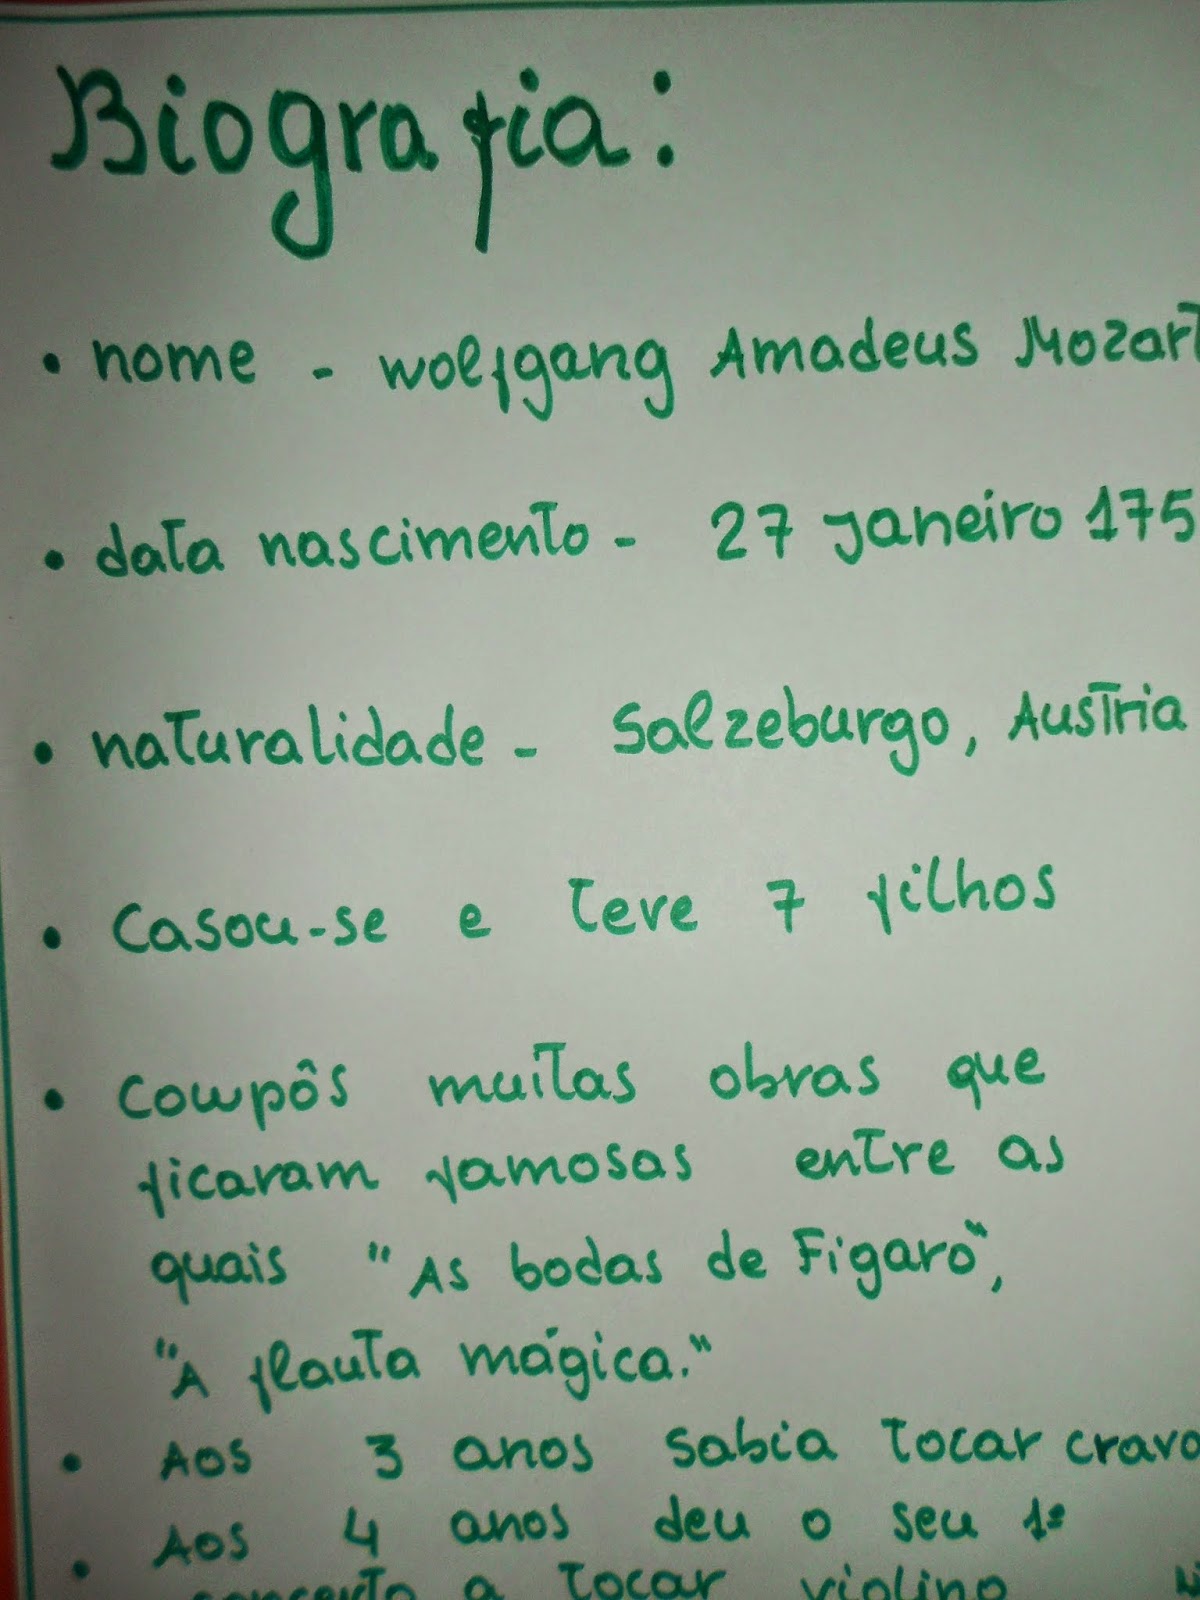 Biografia:
• nome - wolfgang Amadeus Mozart
• data nascimento - 27 janeiro 175
• naturalidade - Salzeburgo, Austria
• Casou-se e teve 7 filhos
• Compôs muitas obras que
ficaram famosas entre as
quais "As bodas de Figaro",
"A flauta mágica."
• Aos 3 anos sabia tocar cravo
• Aos 4 anos deu o seu 1º
concerto a tocar violino